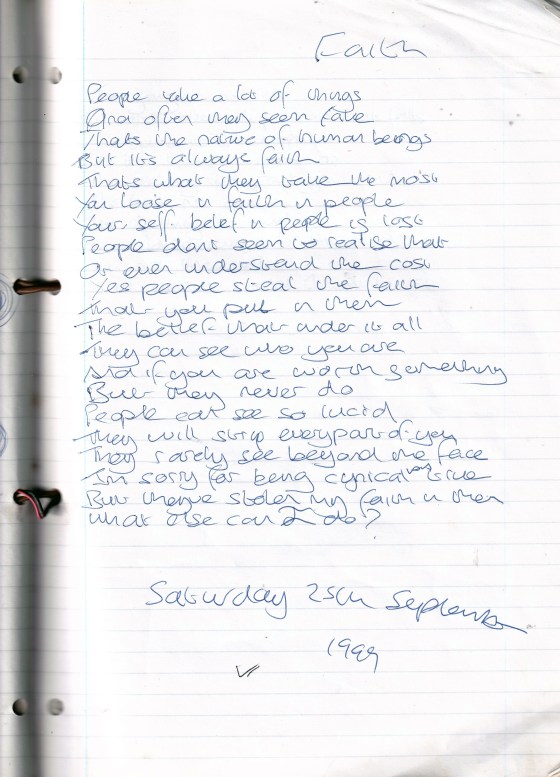 Faith
People take a lot of things
And often they seem fake
Thats the nature of human beings
But it's always faith
Thats what they take the most
You loose n faith n people
Your self belief n people is lost
People dont seem to realise that
Or even understand the cost
Yes people steal the faith
That you put n them
The belief that under it all
They can see who you are
And if you are worth something
But they never do
People cant see so lucid
They will strip every part of you
They rarely see beyond the face
Im sorry for being cynical but true
But theyve stolen my faith n them
What else can I do?
Saturday 25th September
1999